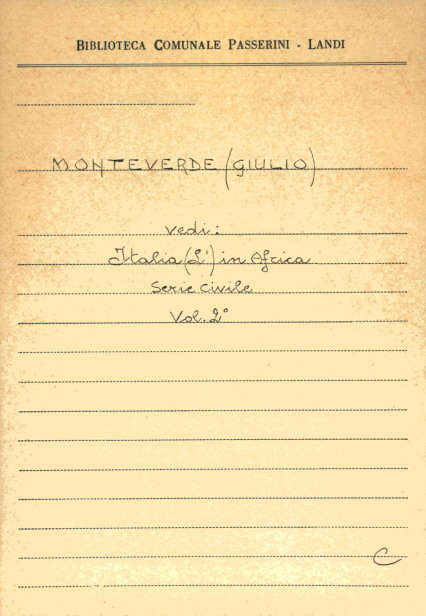 BIBLIOTECA COMUNALE PASSERINI - LANDI
MONTEVERDE (GIULIO)
vedi:
Italia (L') in Africa
Serie civile
Vol. 2°
C